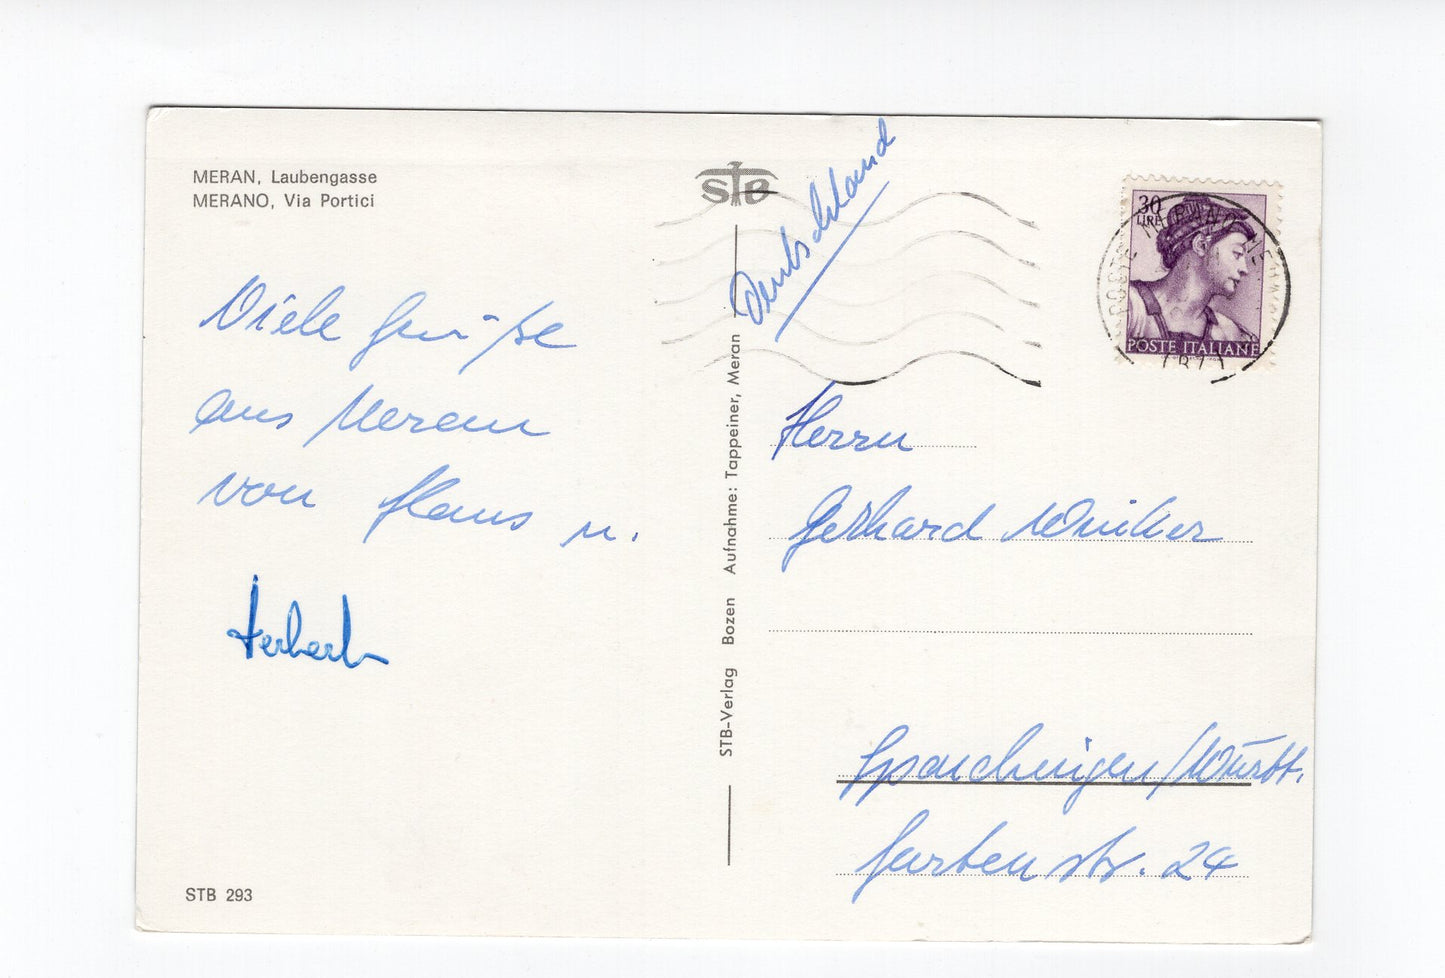 MERAN, Laubengasse
MERANO, Via Portici
STB
Deutschland
30
LIRE
POSTE ITALIANE
POSTE MERANO
Viele Grüße
aus Meran
von Klaus u.
Herbert
STB-Verlag Bozen Aufnahme: Tappeiner, Meran
Herrn
Gerhard
Spaichingen/Württ.
Gartenstr. 24
STB 293